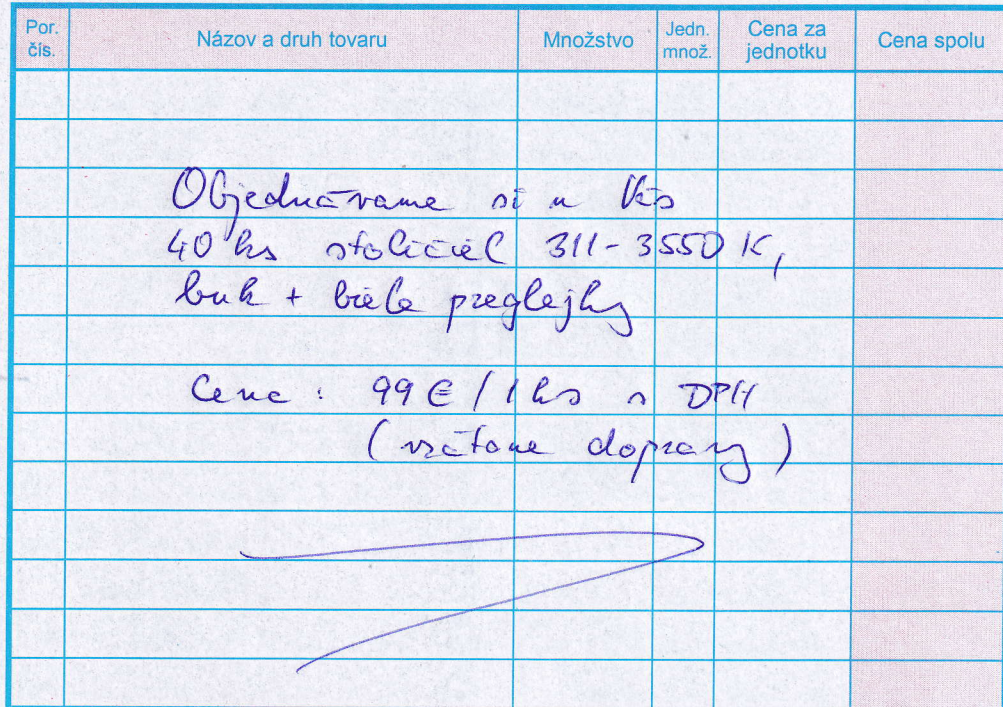 Por. čís.
Názov a druh tovaru
Množstvo
Jedn. množ.
Cena za jednotku
Cena spolu
Objednávame si u Vás
40 ks stoličiek 311-3550 K,
buk + biele preglejky
Cena : 99 € / 1 ks s DPH
( vrátane dopravy )